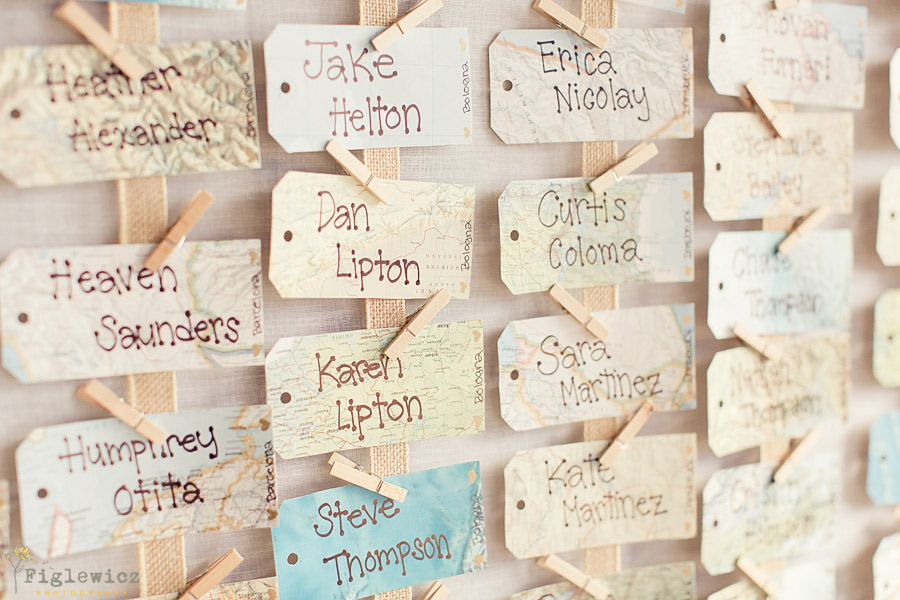 Heather
Alexander
Barcelona
Heaven
Saunders
Barcelona
Humphrey
Otita
Barcelona
Jake
Helton
Bologna
Dan
Lipton
Bologna
Karen
Lipton
Bologna
Steve
Thompson
Bologna
Erica
Nicolay
Curtis
Coloma
Sara
Martinez
Kate
Martinez
Donovan
Furnari
Stephanie
Bailey
Chase
Thompson
Thompson
Figlewicz
PHOTOGRAPHY